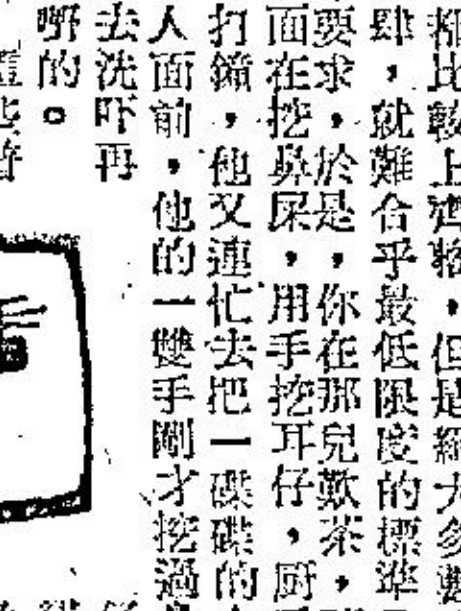 相比較上齊整，但是絕大多數
肆，就難合乎最低限度的標準
要求，於是，你在那兒歎茶，
面在挖鼻屎，用手挖耳仔，厨
打鐘，他又連忙去把一碟碟的
人面前，他的一雙手剛才挖過
去洗吓再
嘢的。